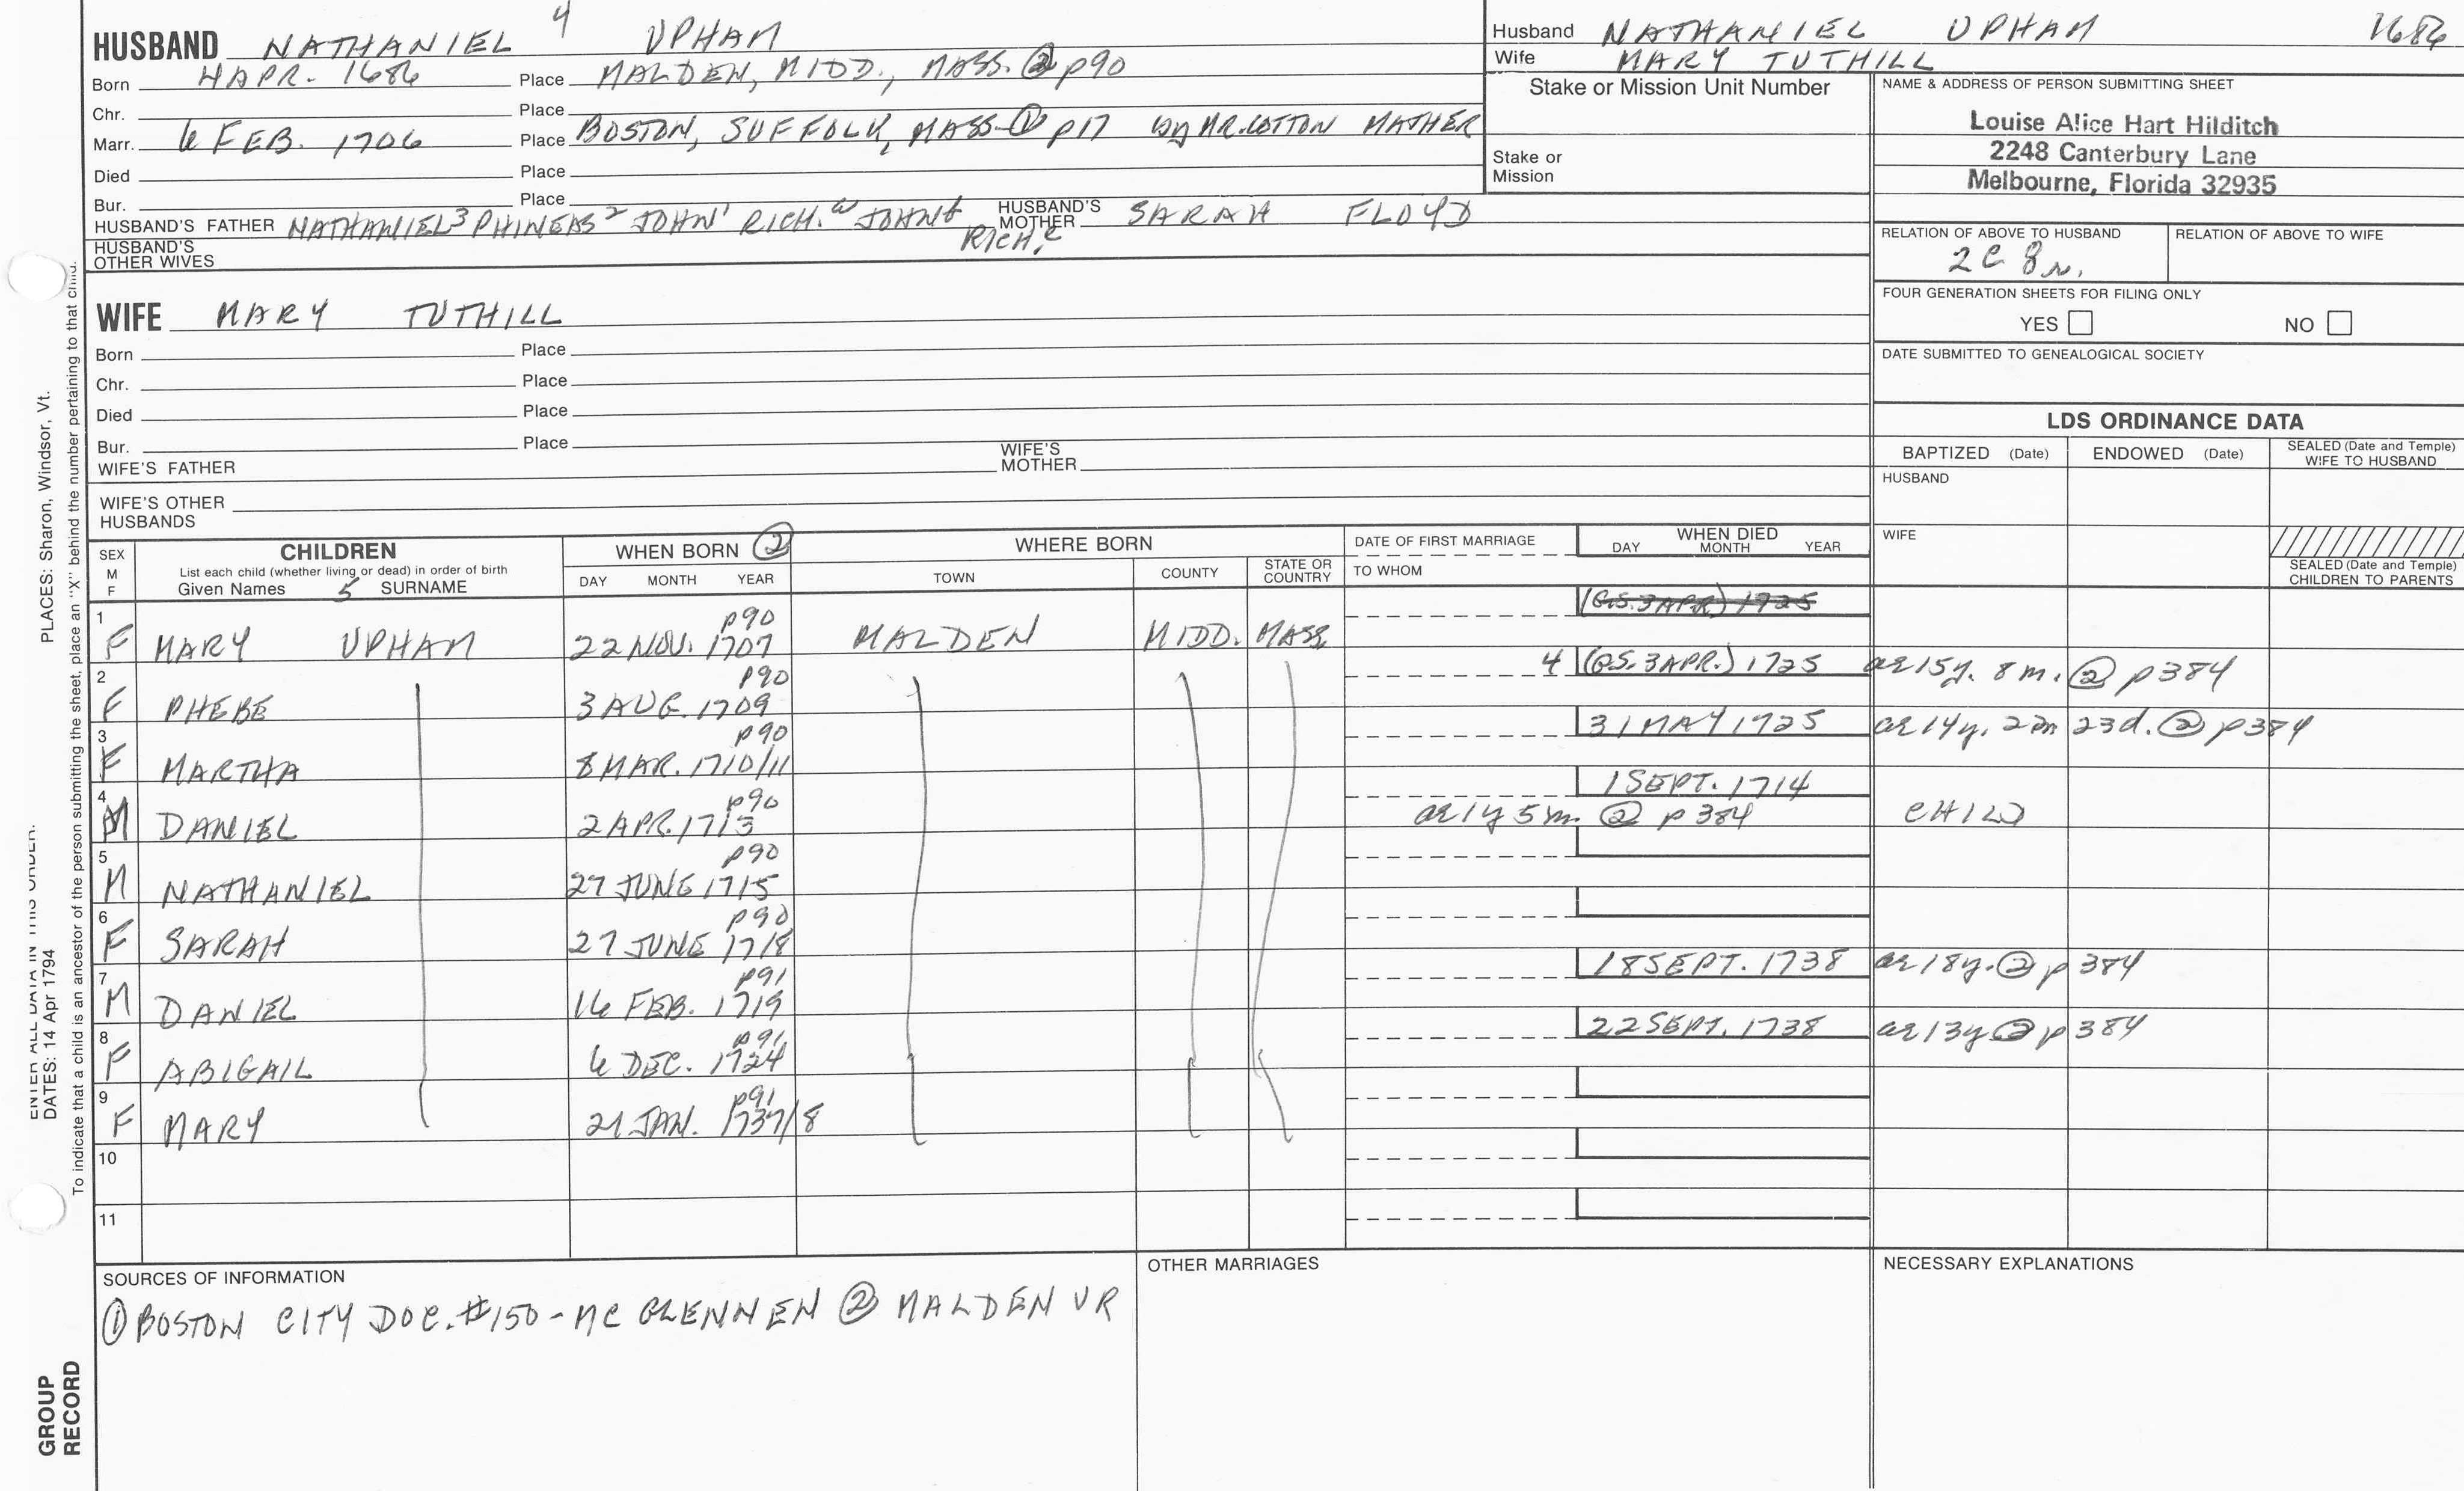 HUSBAND NATHANIEL 4 UPHAM
Born 4 APR. 1686 Place MALDEN, MIDD., MASS. ② p90
Chr. Place
Marr. 6 FEB. 1706 Place BOSTON, SUFFOLK, MASS. ① p17 by MR. COTTON MATHER
Died Place
Bur. Place
HUSBAND'S FATHER NATHANIEL3 PHINEAS2 JOHN1 RICH. JOHN RICH. HUSBAND'S MOTHER SARAH FLOYD
HUSBAND'S OTHER WIVES
Husband NATHANIEL UPHAM 1686
Wife MARY TUTHILL
Stake or Mission Unit Number
Stake or Mission
NAME & ADDRESS OF PERSON SUBMITTING SHEET
Louise Alice Hart Hilditch
2248 Canterbury Lane
Melbourne, Florida 32935
RELATION OF ABOVE TO HUSBAND RELATION OF ABOVE TO WIFE
2C 8r.
FOUR GENERATION SHEETS FOR FILING ONLY
YES NO
DATE SUBMITTED TO GENEALOGICAL SOCIETY
WIFE MARY TUTHILL
Born Place
Chr. Place
Died Place
Bur. Place
WIFE'S FATHER WIFE'S MOTHER
WIFE'S OTHER HUSBANDS
LDS ORDINANCE DATA
BAPTIZED (Date) ENDOWED (Date) SEALED (Date and Temple) WIFE TO HUSBAND
HUSBAND
WIFE
SEALED (Date and Temple) CHILDREN TO PARENTS
SEX M F
CHILDREN
List each child (whether living or dead) in order of birth
Given Names 5 SURNAME
WHEN BORN ②
DAY MONTH YEAR
WHERE BORN
TOWN COUNTY STATE OR COUNTRY
DATE OF FIRST MARRIAGE
TO WHOM
WHEN DIED
DAY MONTH YEAR
(G.S. 3 APR) 1725
1 F MARY UPHAM 22 NOV. 1707 p90 MALDEN MIDD. MASS.
2 F PHEBE 3 AUG. 1709 p90 4 (G.S. 3 APR.) 1725 ae 15y. 8m. ② p384
3 F MARTHA 8 MAR. 1710/11 p90 31 MAY 1725 ae 14y. 2m 23d. ② p384
4 M DANIEL 2 APR. 1713 p90 1 SEPT. 1714 ae 1y 5m. ② p384 CHILD
5 M NATHANIEL 27 JUNE 1715 p90
6 F SARAH 27 JUNE 1718 p90
7 M DANIEL 16 FEB. 1719 p91 18 SEPT. 1738 ae 18y. ② p384
8 F ABIGAIL 6 DEC. 1724 p91 22 SEPT. 1738 ae 13y ② p384
9 F MARY 21 JAN. 1737/8 p91
10
11
SOURCES OF INFORMATION
① BOSTON CITY DOC. #150 - MC GLENNEN ② MALDEN VR
OTHER MARRIAGES
NECESSARY EXPLANATIONS
PLACES: Sharon, Windsor, Vt.
DATES: 14 Apr 1794
To indicate that a child is an ancestor of the person submitting the sheet, place an "X" behind the number pertaining to that child.
GROUP
RECORD